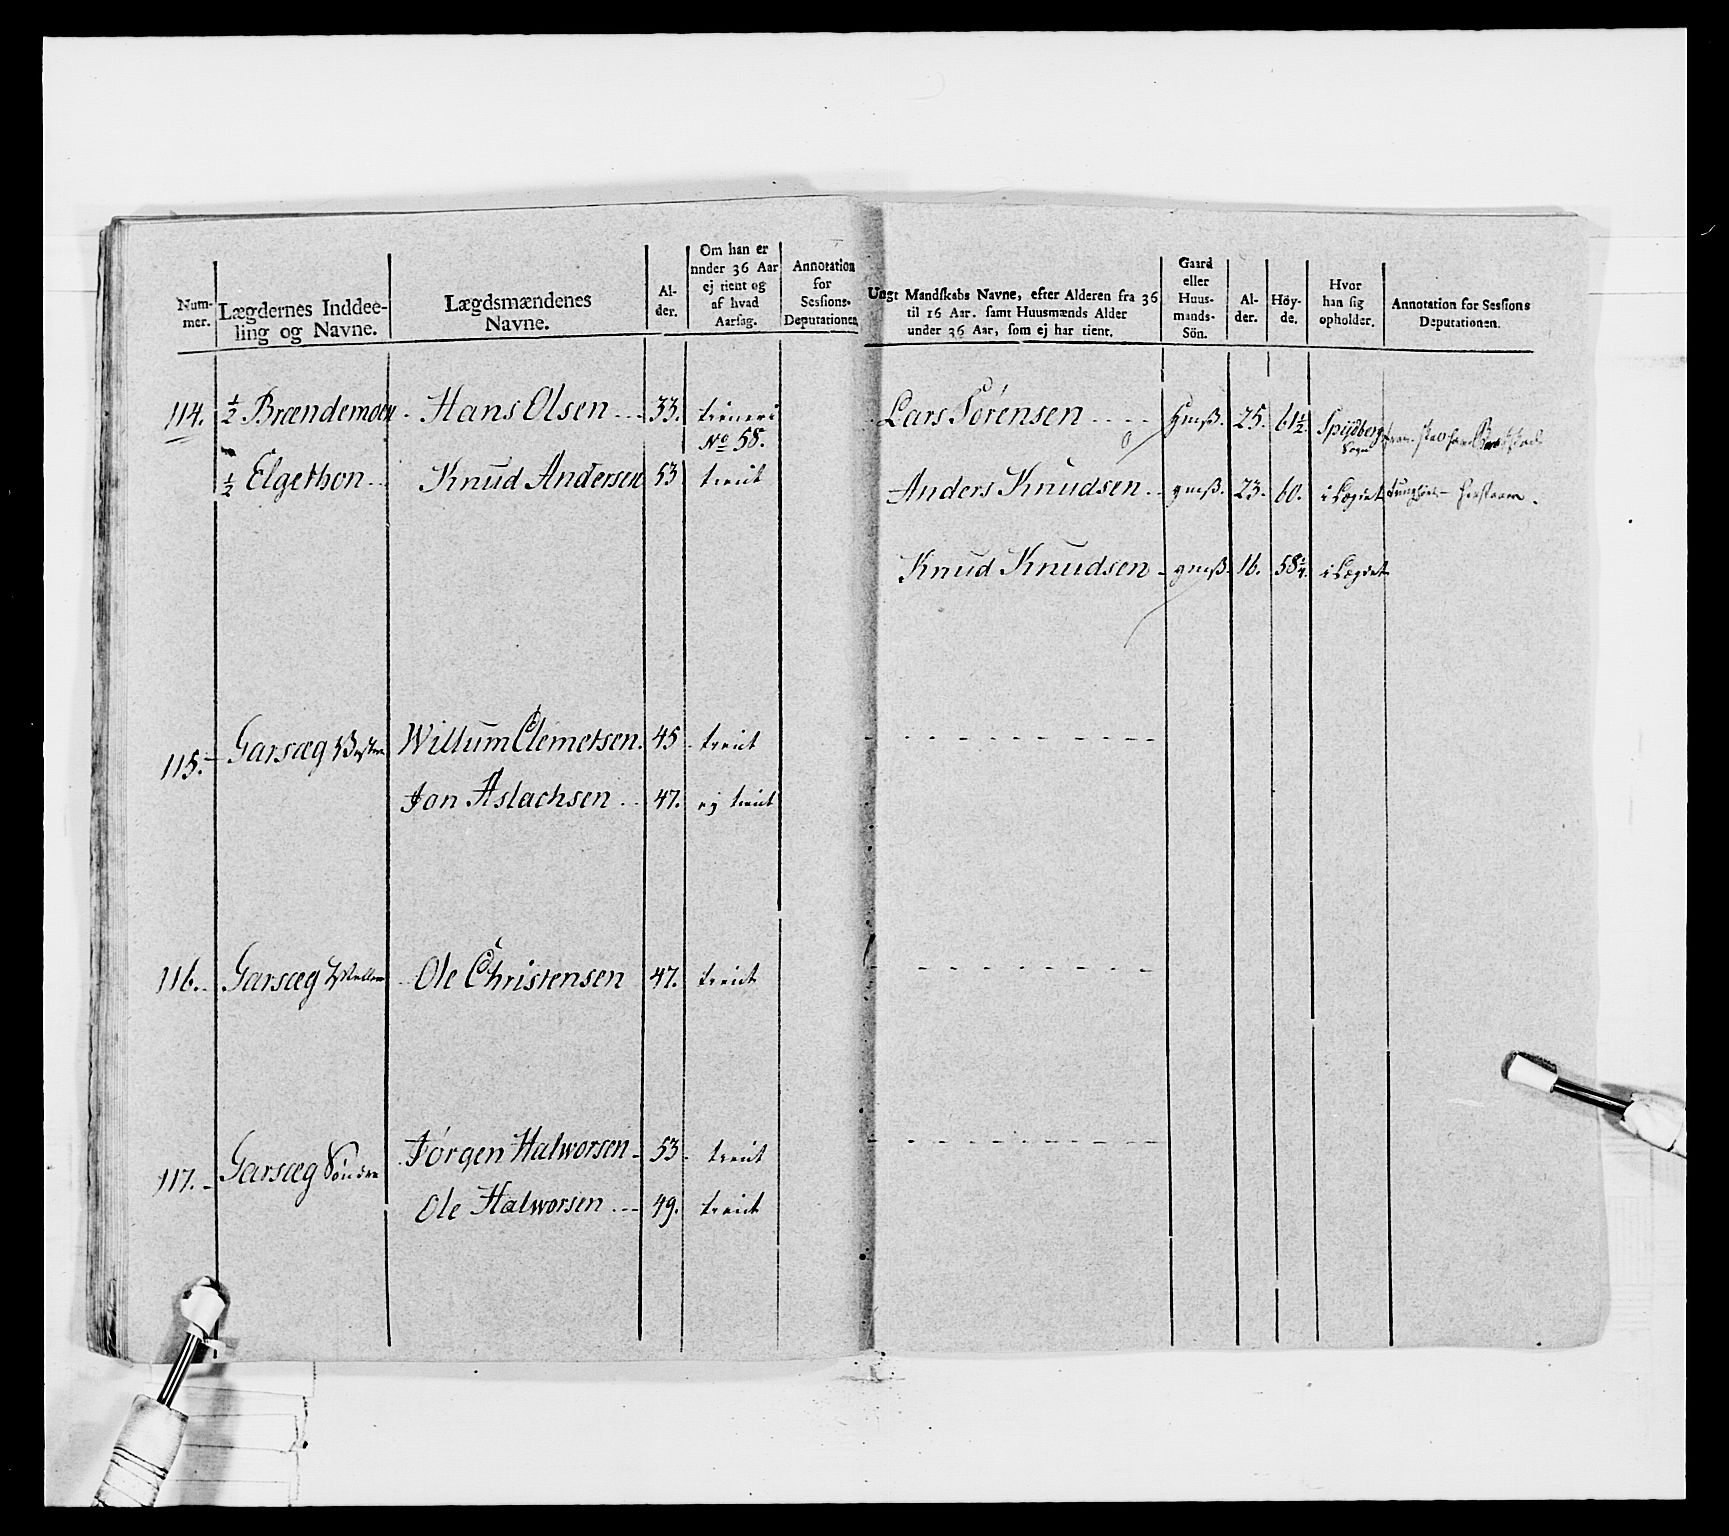 Num-
mer.
Lægdernes Inddee-
ling og Navne.
Lægdsmændenes
Navne.
Al-
der.
Om han er
nnder 36 Aar
ej tient og
af hvad
Aarsag.
Annotation
for
Sessions-
Deputationen.
Ungt Mandskabs Navne, efter Alderen fra 36
til 16 Aar. samt Huusmænds Alder
under 36 Aar, som ej har tient.
Gaard
eller
Huus-
mands-
Sön.
Al-
der.
Höy-
de.
Hvor
han sig
opholder.
Annotation for Sessions
Deputationen.
114. ½ Brændemoen - Hans Olsen - - - 33. tiener i Lars Sörensen - - - - hmß. 25. 61½. Spydberg
No 58. Sogn
½ Elgethon - - Knud Andersen 53 tient Anders Knudsen - - gmß. 23. 60. i Lægdet
Knud Knudsen - gmß. 16. 58¼. i Lægdet
115. Garsæg Westre Willum Clemetsen. 45 - tient - - - - - - - - - -
Jon Aslachsen - - 47. ej tient
116. - Garsæg Mellem - Ole Christensen 47. tient - - - - - - - - - -
117. - Garsæg Söndre Jörgen Halworsen - 53 - tient - - - - - - - - - -
Ole Halworsen - - - 49. tient